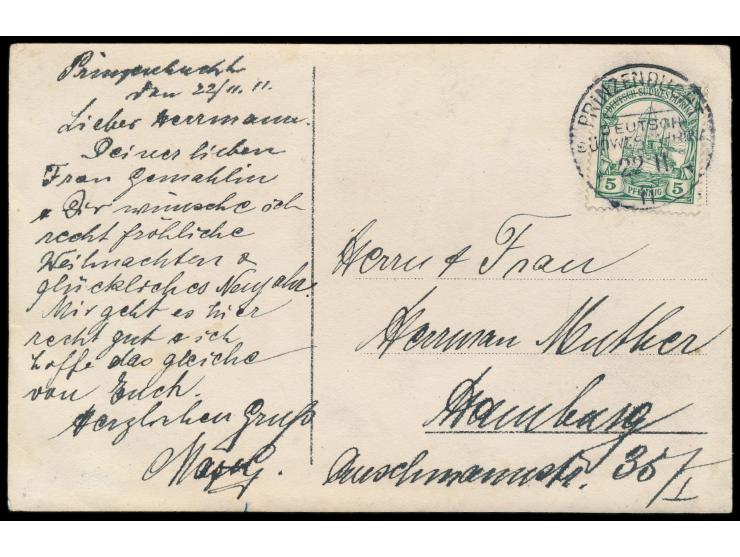 Prinzenbucht
den 22/11. 11.
Lieber Herrmann.
Deiner lieben
Frau Gemahlin
& Dir wünsche ich
recht fröhliche
Weihnachten &
glückliches Neujahr.
Mir geht es hier
recht gut & ich
hoffe das gleiche
von Euch.
Herzlichen Gruß
PRINZENBUCHT
DEUTSCH-
SÜDWESTAFRIKA
22.11.
11
DEUTSCH-SÜDWESTAFRIKA
5 PFENNIG 5
Herrn & Frau
Herrman Muther
Hamburg
35/I